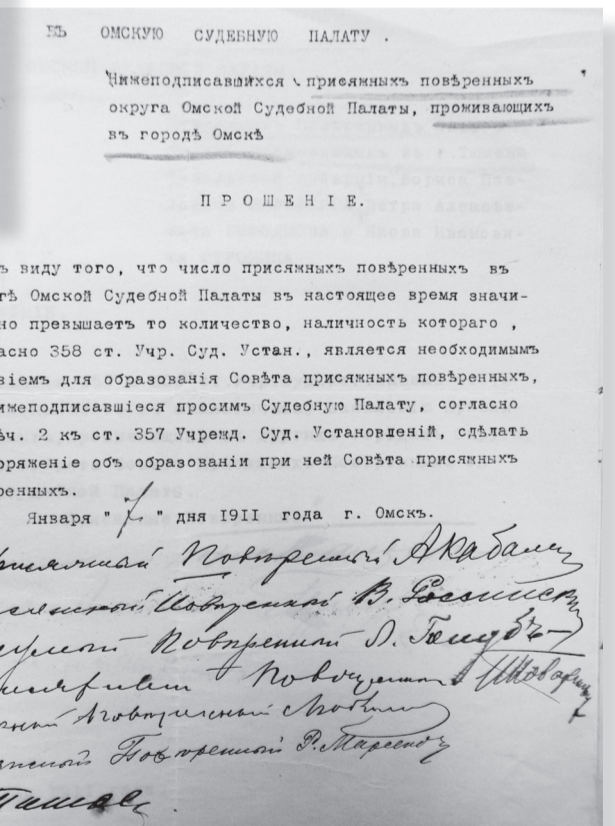 ВЪ ОМСКУЮ СУДЕБНУЮ ПАЛАТУ.
Нижеподписавшихся присяжныхъ повѣренныхъ
округа Омской Судебной Палаты, проживающихъ
въ городѣ Омскѣ
ПРОШЕНІЕ.
ъ виду того, что число присяжныхъ повѣренныхъ въ
гѣ Омской Судебной Палаты въ настоящее время значи-
но превышаетъ то количество, наличность котораго ,
асно 358 ст. Учр. Суд. Устан., является необходимымъ
віемъ для образованія Совѣта присяжныхъ повѣренныхъ,
ижеподписавшіеся просимъ Судебную Палату, согласно
ѣч. 2 къ ст. 357 Учрежд. Суд. Установленій, сдѣлать
оряженіе объ образованіи при ней Совѣта присяжныхъ
ренныхъ.
Января "7" дня 1911 года г. Омскъ.
Повѣренный
Повѣренный В.
Повѣренный Л.
Повѣренный
Повѣренный
Повѣренный Р.